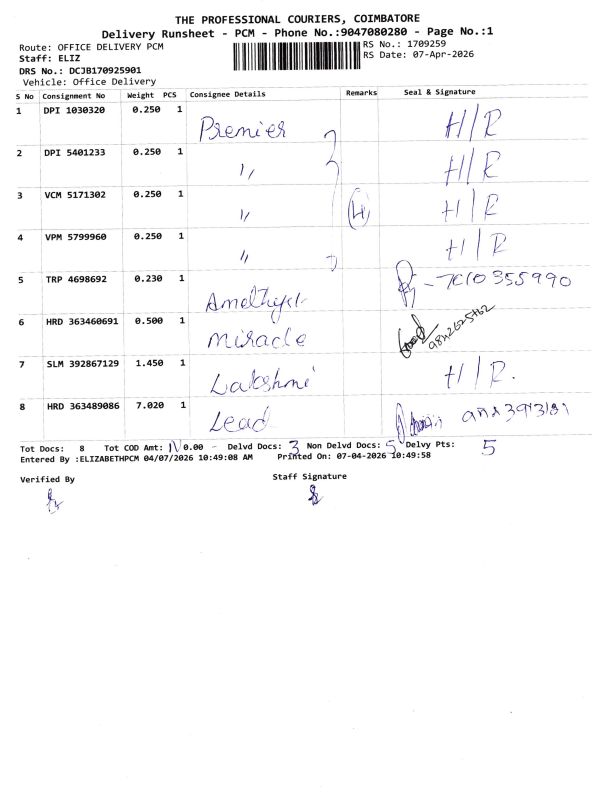 THE PROFESSIONAL COURIERS, COIMBATORE
Delivery Runsheet - PCM - Phone No.:9047080280 - Page No.:1
Route: OFFICE DELIVERY PCM
RS No.: 1709259
Staff: ELIZ
RS Date: 07-Apr-2026
DRS No.: DCJB170925901
Vehicle: Office Delivery
S No Consignment No Weight PCS Consignee Details Remarks Seal & Signature
1 DPI 1030320 0.250 1 Premier H/R
2 DPI 5401233 0.250 1 〃 H/R
3 VCM 5171302 0.250 1 〃 (4) H/R
4 VPM 5799960 0.250 1 〃 H/R
5 TRP 4698692 0.230 1 Amethyst - 7010355990
6 HRD 363460691 0.500 1 Miracle
7 SLM 392867129 1.450 1 Lakshmi H/R.
8 HRD 363489086 7.020 1 Lead
Tot Docs: 8 Tot COD Amt: 0.00 - Delvd Docs: 3 Non Delvd Docs: 5 Delvy Pts: 5
Entered By :ELIZABETHPCM 04/07/2026 10:49:08 AM Printed On: 07-04-2026 10:49:58
Verified By Staff Signature